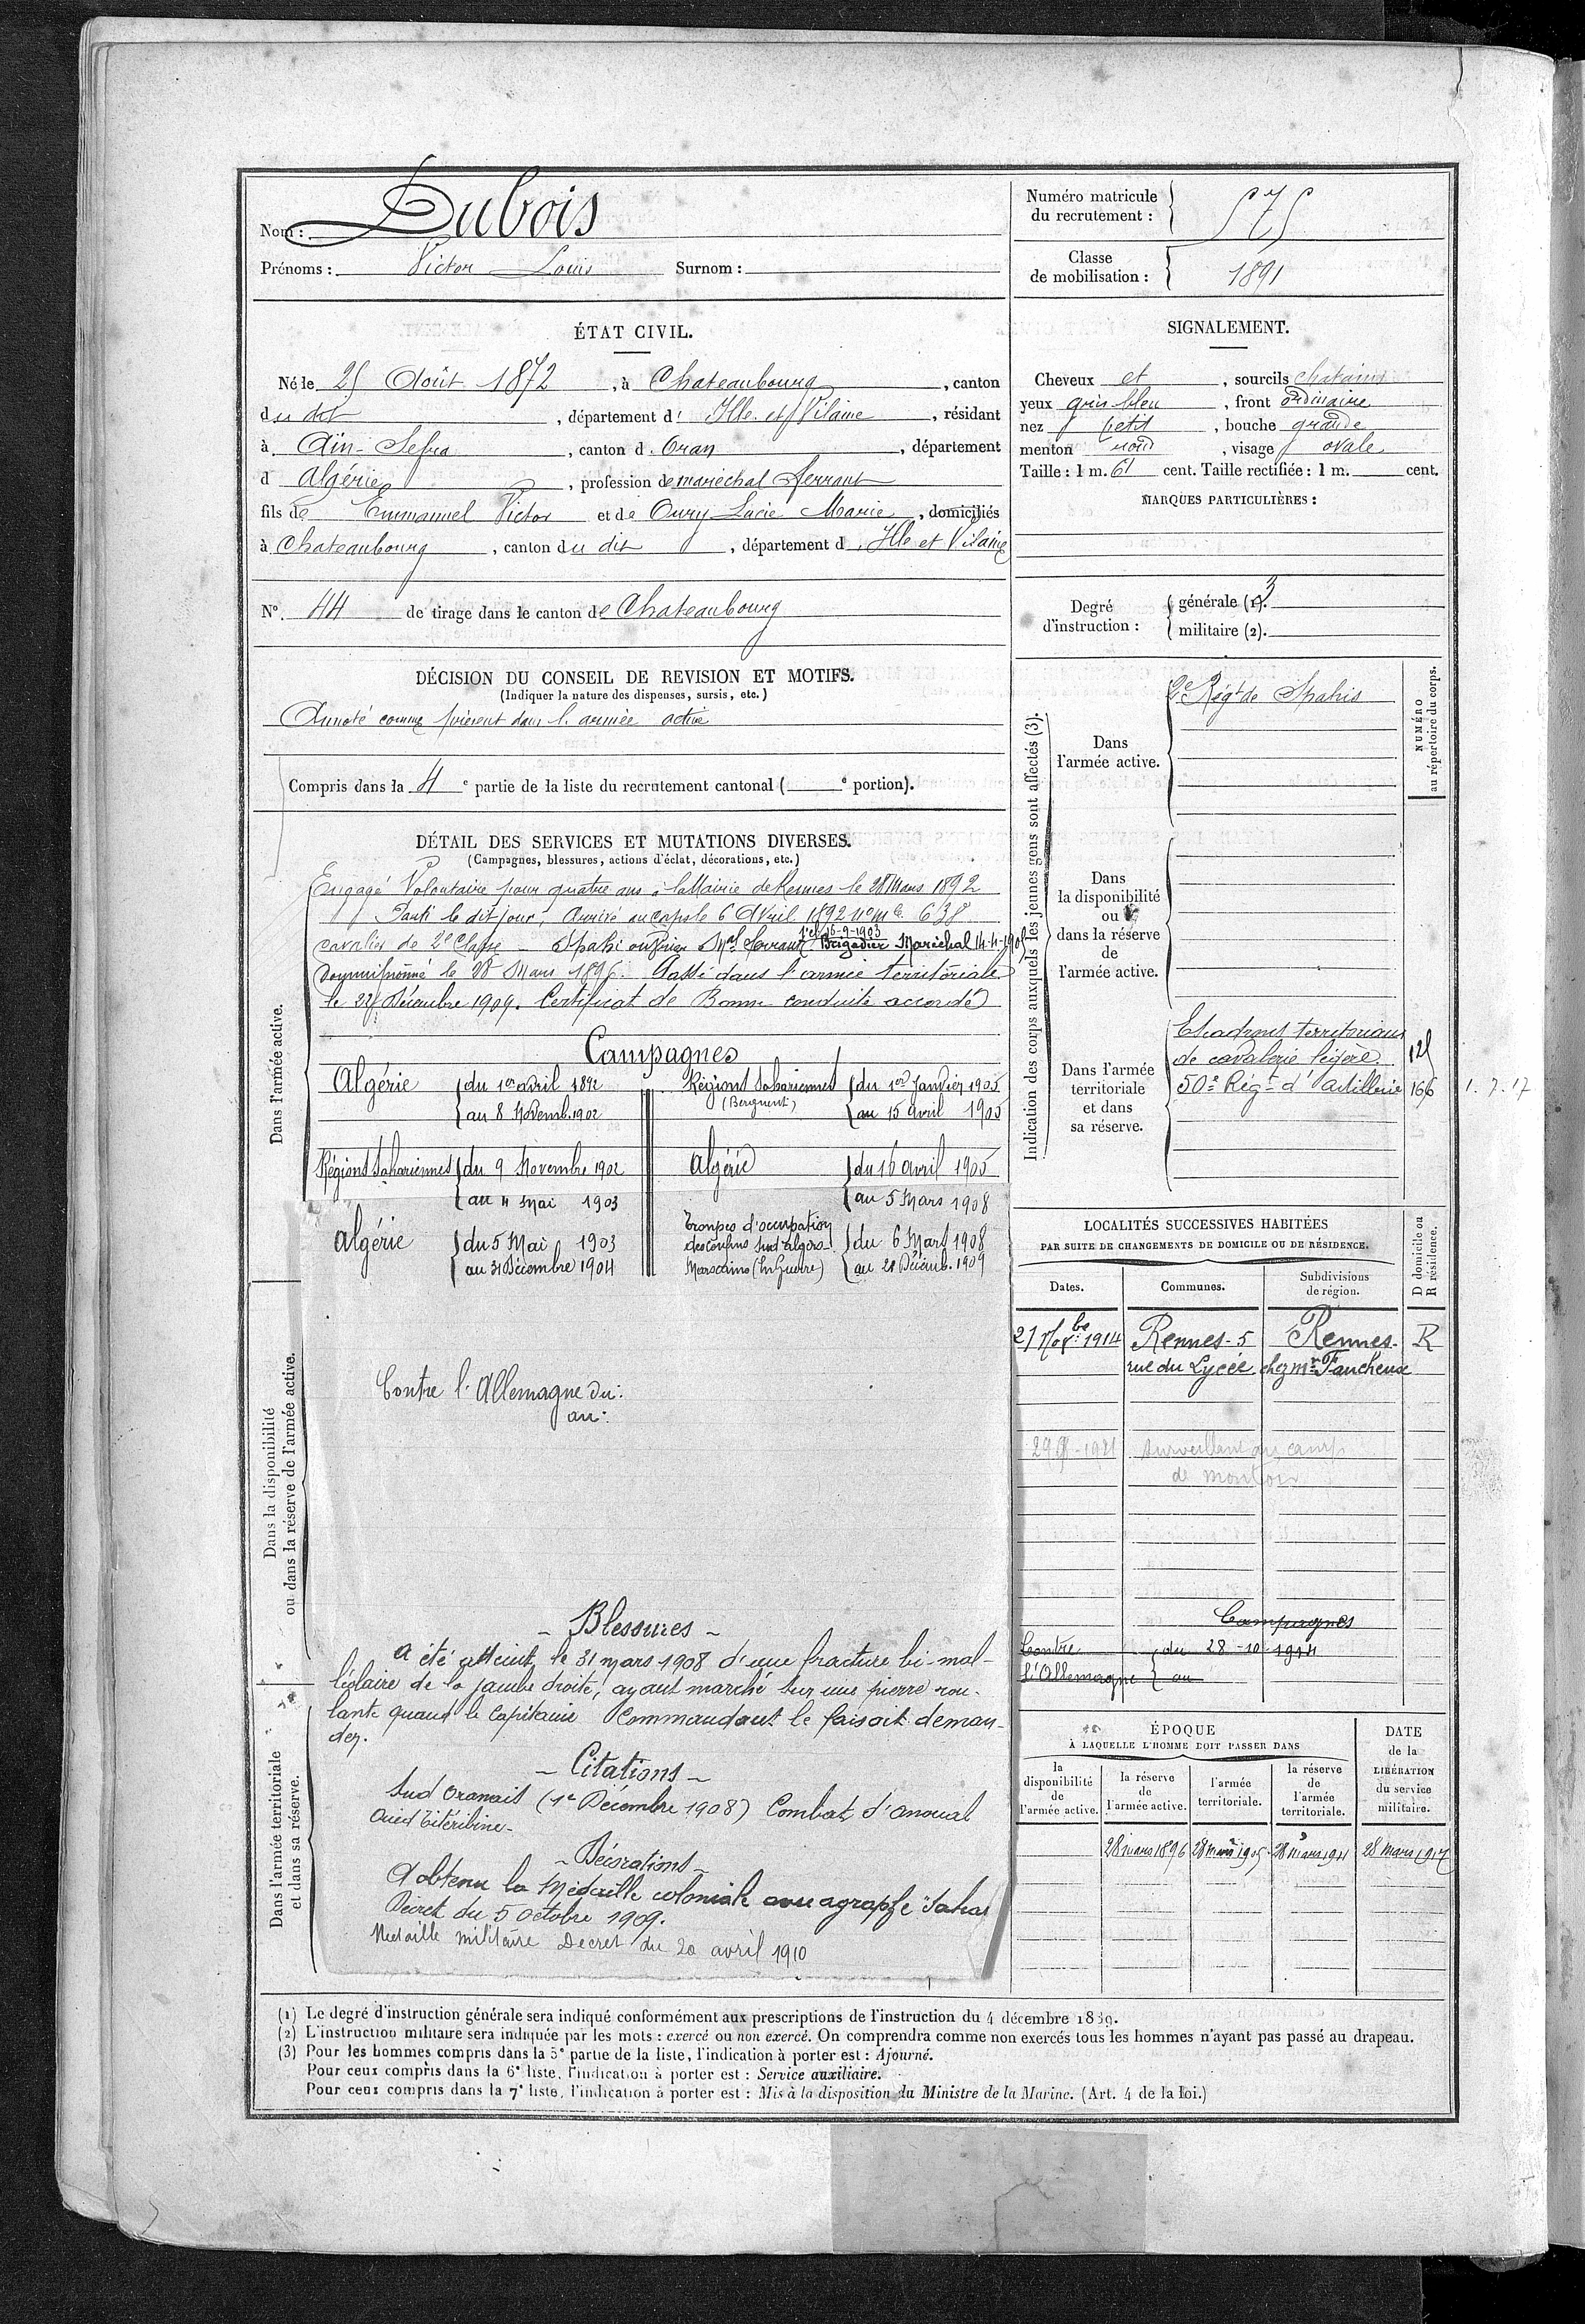 Nom : Dubois
Prénoms : Victor Louis Surnom :
Numéro matricule du recrutement : 575
Classe de mobilisation : 1891
ÉTAT CIVIL.
Né le 25 Août 1872, à Chateaubourg, canton
du dit, département d'Ille et Vilaine, résidant
à Aïn-Sefra, canton d. Oran, département
d Algérie, profession de maréchal ferrant
fils de Emmanuel Victor et de Oury Lucie Marie, domiciliés
à Chateaubourg, canton du dit, département d Ille et Vilaine
N° 44 de tirage dans le canton de Chateaubourg
SIGNALEMENT.
Cheveux et, sourcils chatains
yeux gris bleu, front ordinaire
nez petit, bouche grande
menton rond, visage ovale
Taille : 1 m. 61 cent. Taille rectifiée : 1 m. cent.
MARQUES PARTICULIÈRES :
Degré d'instruction :
générale (1). 3
militaire (2).
DÉCISION DU CONSEIL DE REVISION ET MOTIFS.
(Indiquer la nature des dispenses, sursis, etc.)
Annoté comme présent dans l'armée active
Compris dans la 4e partie de la liste du recrutement cantonal ( e portion).
DÉTAIL DES SERVICES ET MUTATIONS DIVERSES.
(Campagnes, blessures, actions d'éclat, décorations, etc.)
Dans l'armée active.
Engagé Volontaire pour quatre ans à la Mairie de Rennes le 28 Mars 1892
Parti le dit jour, Arrivé au corps le 6 Avril 1892 no mle 638
1e cl 16-9-1903
cavalier de 2e Classe - Spahi ouvrier Mal ferrant Brigadier Maréchal 14-4-190
le 28 Mars 1896. Passé dans l'armée territoriale
le 22 Décembre 1909. Certificat de Bonne conduite accordé
Campagnes
Algérie du 1er avril 1892
au 8 Novemb. 1902
Régions Sahariennes du 9 Novembre 1902
au 4 Mai 1903
Algérie du 5 Mai 1903
au 31 Décembre 1904
Régions Sahariennes du 1er Janvier 1905
(Berguent) au 15 avril 1905
Algérie du 16 avril 1905
au 5 Mars 1908
Troupes d'occupation
des confins Sud algéro- du 6 Mars 1908
Marocains (En Guerre) au 21 Décemb. 1909
Dans la disponibilité
ou dans la réserve de l'armée active.
Contre l'Allemagne du :
au :
- Blessures -
A été atteint le 31 mars 1908 d'une fracture bi-mal-
léolaire de la jambe droite, ayant marché sur une pierre rou-
lante quand le Capitaine Commandant le faisait deman-
der.
Dans l'armée territoriale
et dans sa réserve.
- Citations -
Sud Oranais (1er Décembre 1908) Combat d'anoual
- Décorations -
A obtenu la Médaille coloniale avec agrafe "Sahar
Décret du 5 octobre 1909.
Medaille militaire Decret du 20 avril 1910
Indication des corps auxquels les jeunes gens sont affectés (3).
NUMÉRO
au répertoire du corps.
Dans l'armée active.
2e Régt de Spahis
Dans la disponibilité ou dans la réserve de l'armée active.
Dans l'armée territoriale et dans sa réserve.
Escadrons territoriaux
de cavalerie légère
50e Régt d'artillerie 166 1.7.17
LOCALITÉS SUCCESSIVES HABITÉES
PAR SUITE DE CHANGEMENTS DE DOMICILE OU DE RÉSIDENCE.
Dates. Communes. Subdivisions de région. D domicile ou R résidence.
21 Nov.bre 1914 Rennes-5 Rennes. R
rue du Lycée chez mr Faucheux
surveillant au camp
de montoir
Campagnes
Contre l'Allemagne du 28-10-1914
au
ÉPOQUE
À LAQUELLE L'HOMME DOIT PASSER DANS
la disponibilité de l'armée active.
la réserve de l'armée active.
l'armée territoriale.
la réserve de l'armée territoriale.
DATE de la LIBÉRATION du service militaire.
28 mars 1896 28 mars 1905 28 mars 1911 28 mars 1917
(1) Le degré d'instruction générale sera indiqué conformément aux prescriptions de l'instruction du 4 décembre 1889.
(2) L'instruction militaire sera indiquée par les mots : exercé ou non exercé. On comprendra comme non exercés tous les hommes n'ayant pas passé au drapeau.
(3) Pour les hommes compris dans la 5e partie de la liste, l'indication à porter est : Ajourné.
Pour ceux compris dans la 6e liste, l'indication à porter est : Service auxiliaire.
Pour ceux compris dans la 7e liste, l'indication à porter est : Mis à la disposition du Ministre de la Marine. (Art. 4 de la loi.)